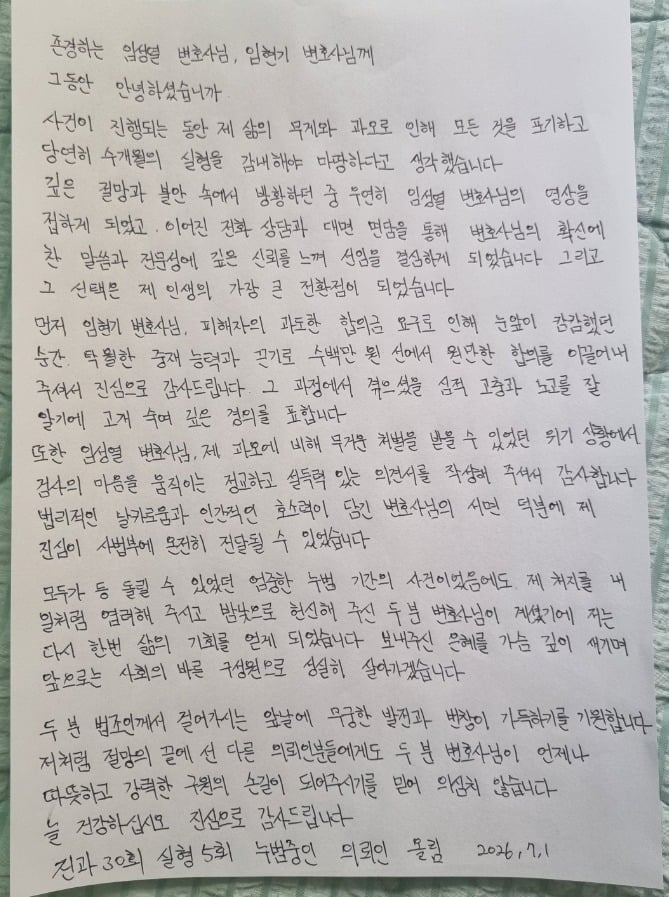 존경하는 임성열 변호사님, 임현기 변호사님께
그동안 안녕하셨습니까
사건이 진행되는 동안 제 삶의 무게와 과오로 인해 모든 것을 포기하고
당연히 수개월의 실형을 감내해야 마땅하다고 생각했습니다
깊은 절망과 불안 속에서 방황하던 중 우연히 임성열 변호사님의 영상을
접하게 되었고, 이어진 전화 상담과 대면 면담을 통해 변호사님의 확신에
찬 말씀과 전문성에 깊은 신뢰를 느껴 선임을 결심하게 되었습니다 그리고
그 선택은 제 인생의 가장 큰 전환점이 되었습니다
먼저 임현기 변호사님, 피해자의 과도한 합의금 요구로 인해 눈앞이 캄캄했던
순간, 탁월한 중재 능력과 끈기로 수백만 원 선에서 원만한 합의를 이끌어내
주셔서 진심으로 감사드립니다. 그 과정에서 겪으셨을 심적 고충과 노고를 잘
알기에 고개 숙여 깊은 경의를 표합니다
또한 임성열 변호사님, 제 과오에 비해 무거운 처벌을 받을 수 있었던 위기 상황에서
검사의 마음을 움직이는 정교하고 설득력 있는 의견서를 작성해 주셔서 감사합니다
법리적인 날카로움과 인간적인 호소력이 담긴 변호사님의 서면 덕분에 제
진심이 사법부에 온전히 전달될 수 있었습니다
모두가 등 돌릴 수 있었던 엄중한 누범 기간의 사건이었음에도 제 처지를 내
일처럼 염려해 주시고 밤낮으로 헌신해 주신 두 분 변호사님이 계셨기에 저는
다시 한번 삶의 기회를 얻게 되었습니다 보내주신 은혜를 가슴 깊이 새기며
앞으로는 사회의 바른 구성원으로 성실히 살아가겠습니다
두 분 법조인께서 걸어가시는 앞날에 무궁한 발전과 번창이 가득하기를 기원합니다
저처럼 절망의 끝에 선 다른 의뢰인분들에게도 두 분 변호사님이 언제나
따뜻하고 강력한 구원의 손길이 되어주시기를 믿어 의심치 않습니다
늘 건강하십시오 진심으로 감사드립니다
전과 30회 실형 5회 누범중인 의뢰인 올림 2026,7,1